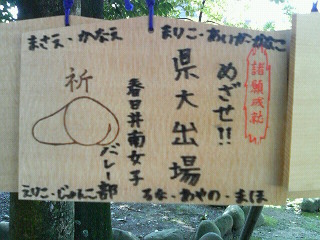 まさえ・かなえ
まりこ・あいか・かなこ
諸願成社
めざせ!!
県大出場
春日井南女子
バレー部
祈
えりこ・じゅんこ
るな・あやの・まほ